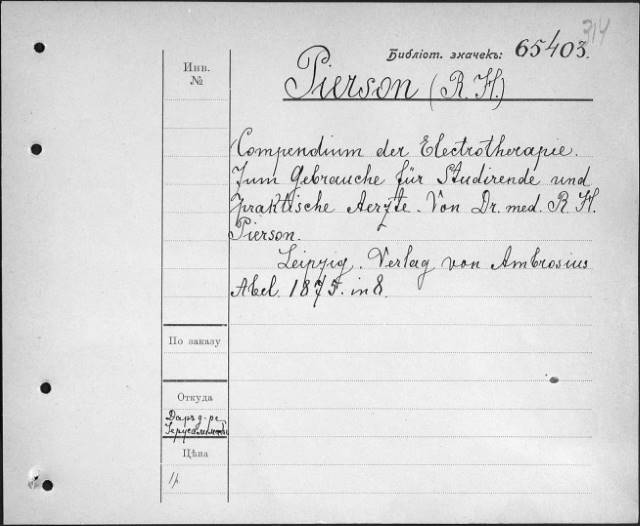 314
Библіот. значекъ: 65403.
Инв.
№
Pierson (R. H.)
Compendium der Electrotherapie.
Zum Gebrauche für Studirende und
praktische Aerzte. Von Dr. med. R. H.
Pierson.
Leipzig. Verlag von Ambrosius
Abel. 1875. in 8.
По заказу
Откуда
Даръ д-ра
Цѣна